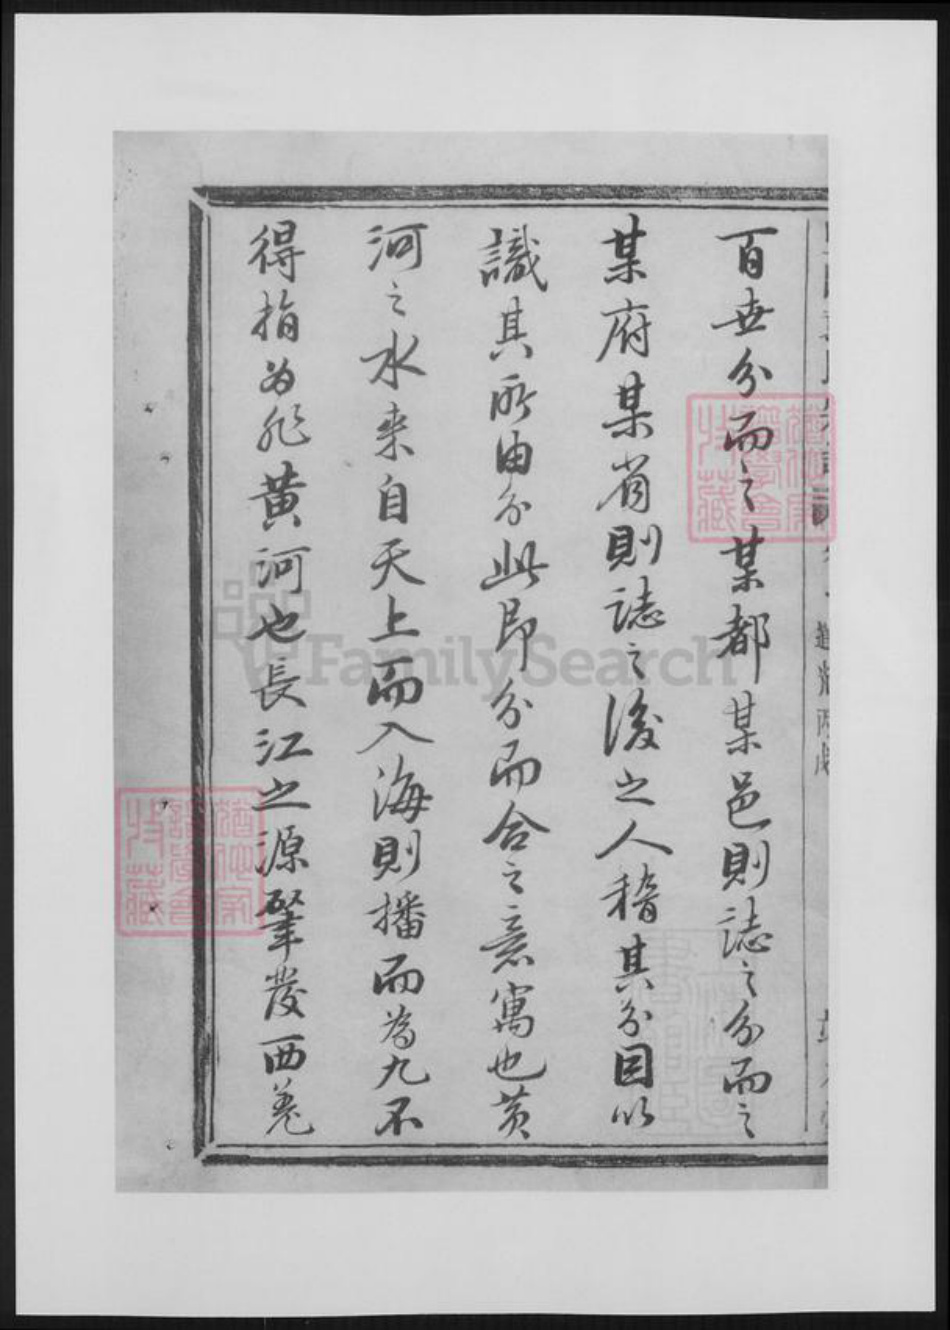 百世分而之某都某邑則誌之分而之
某府某省則誌之後之人稽其分因以
識其所由分此即分而合之意寓也黃
河之水来自天上而入海則播而為九不
得指為非黃河也長江之源肇發西羌
道光丙戌
FamilySearch